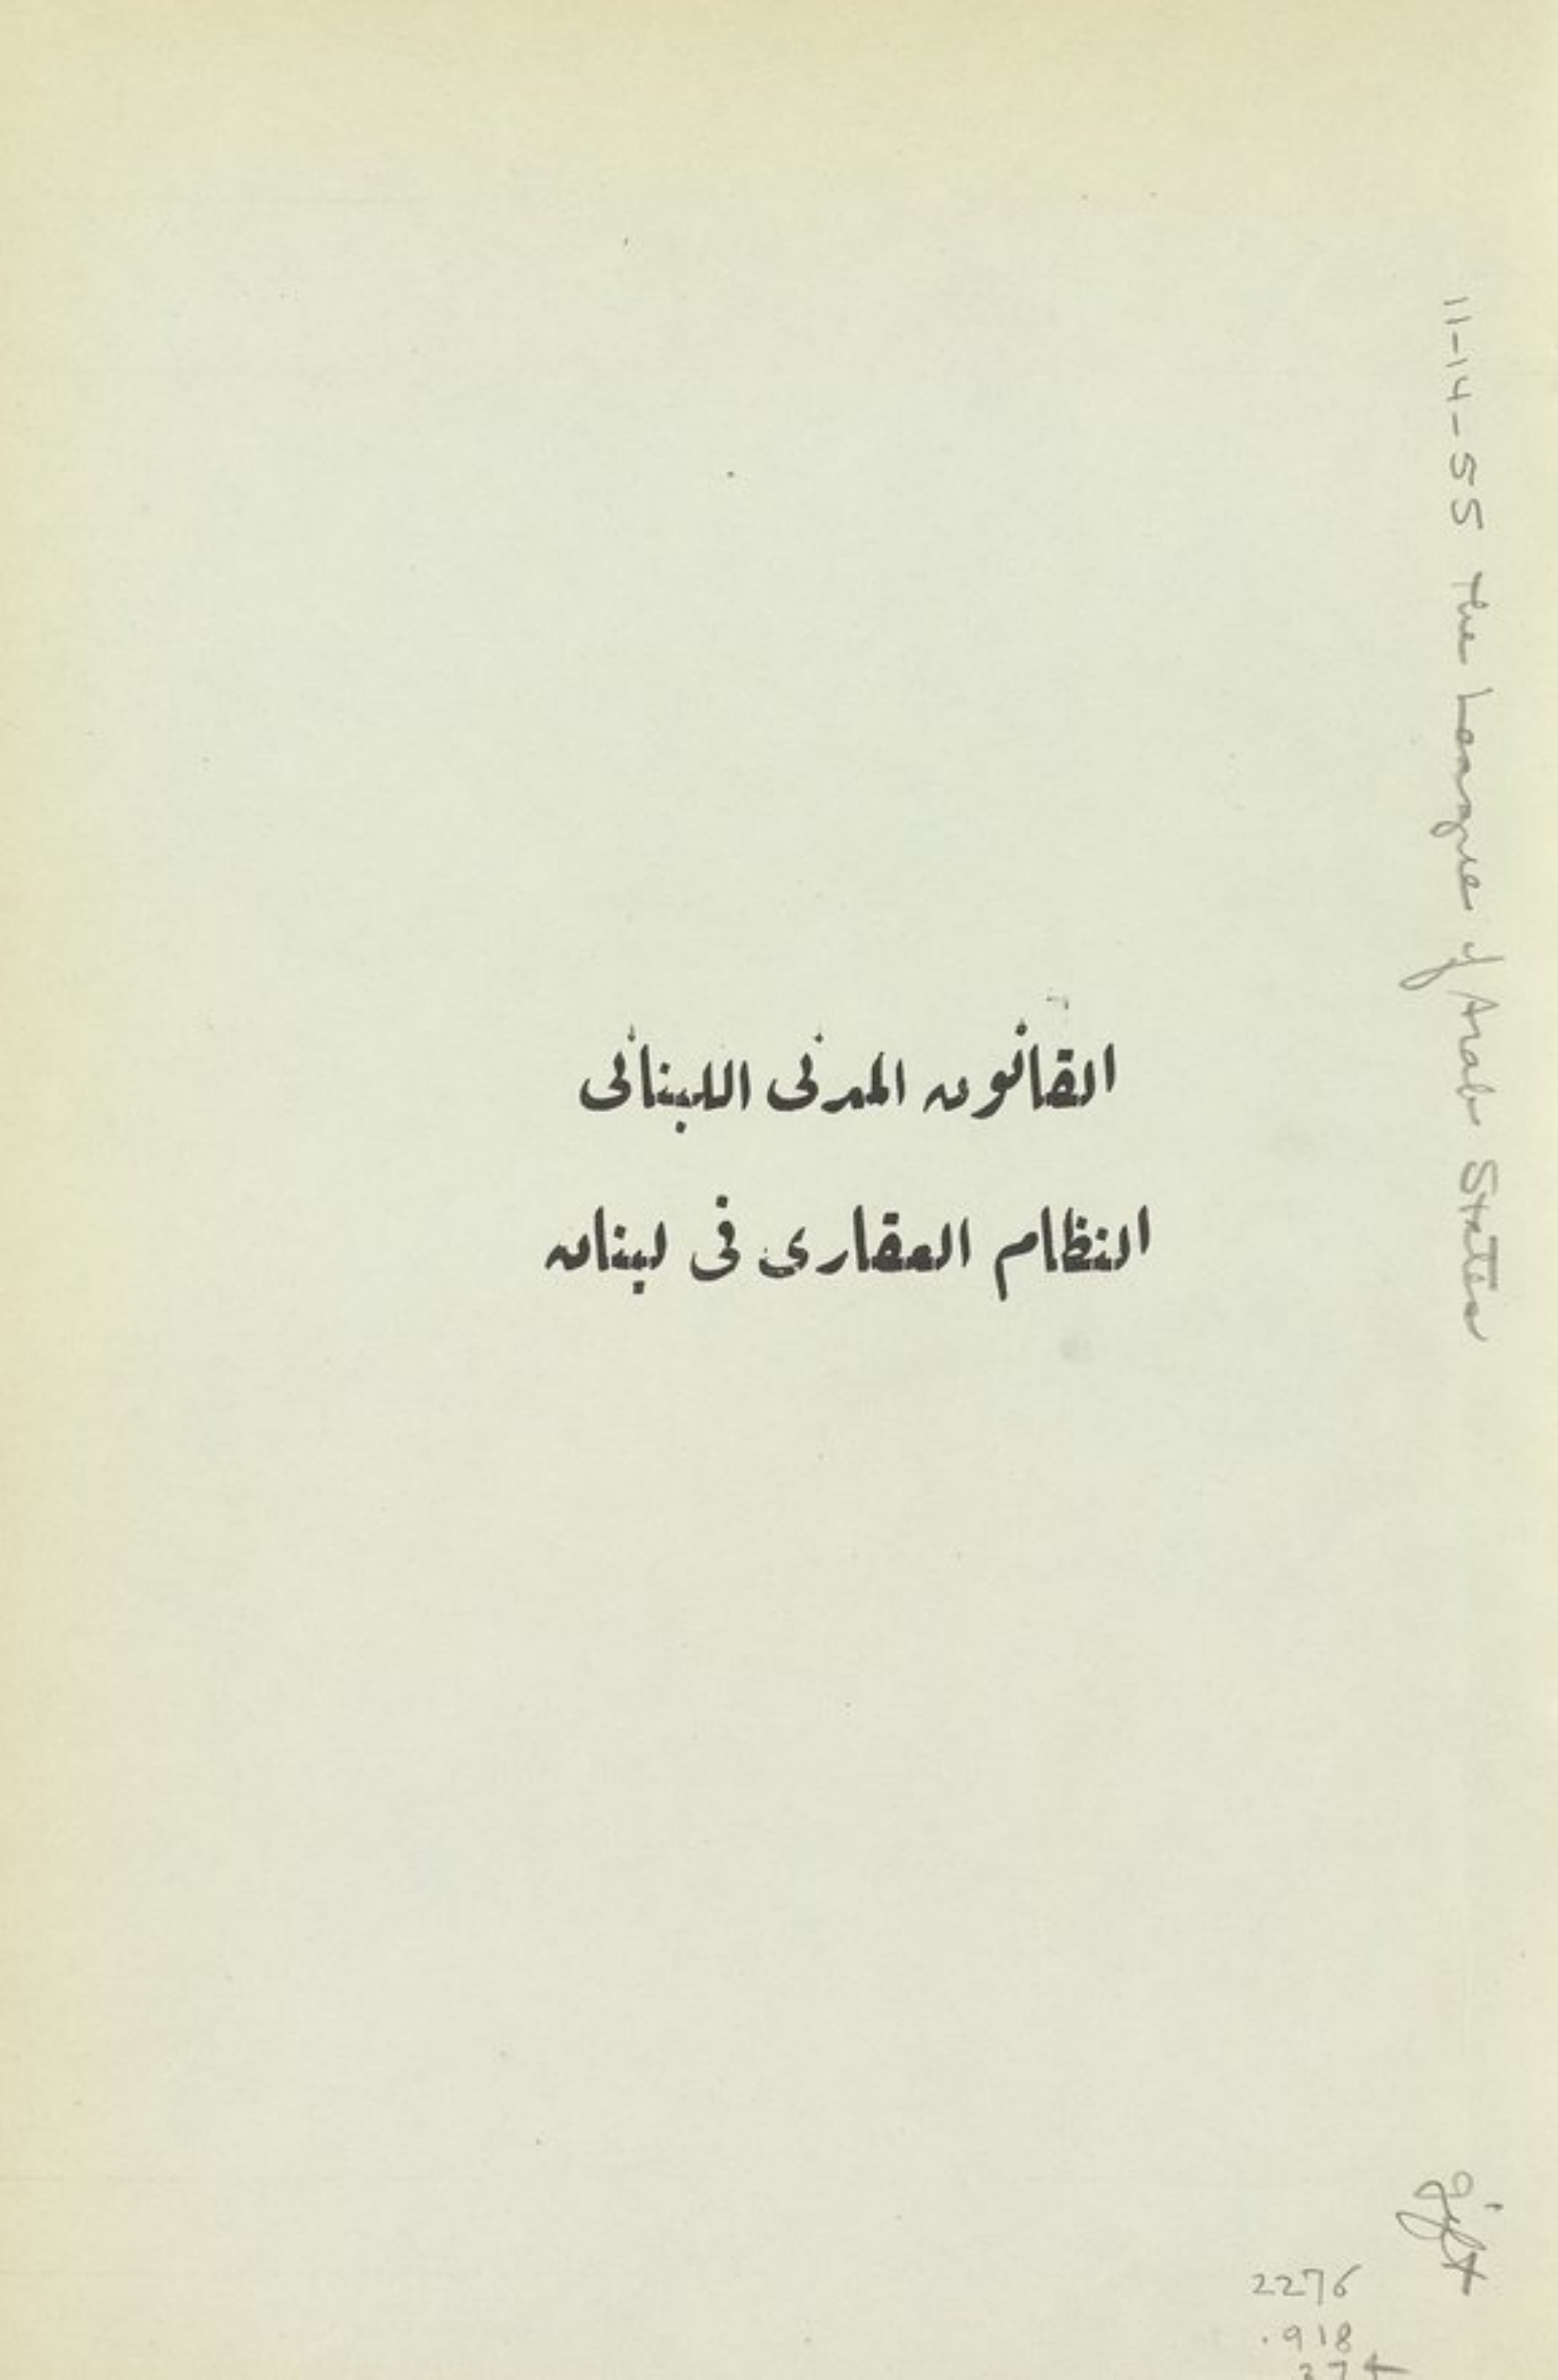 القانون المدنى اللبنانى
النظام العقارى فى لبنان
11-14-55 The League of Arab States
gift
2276
.918